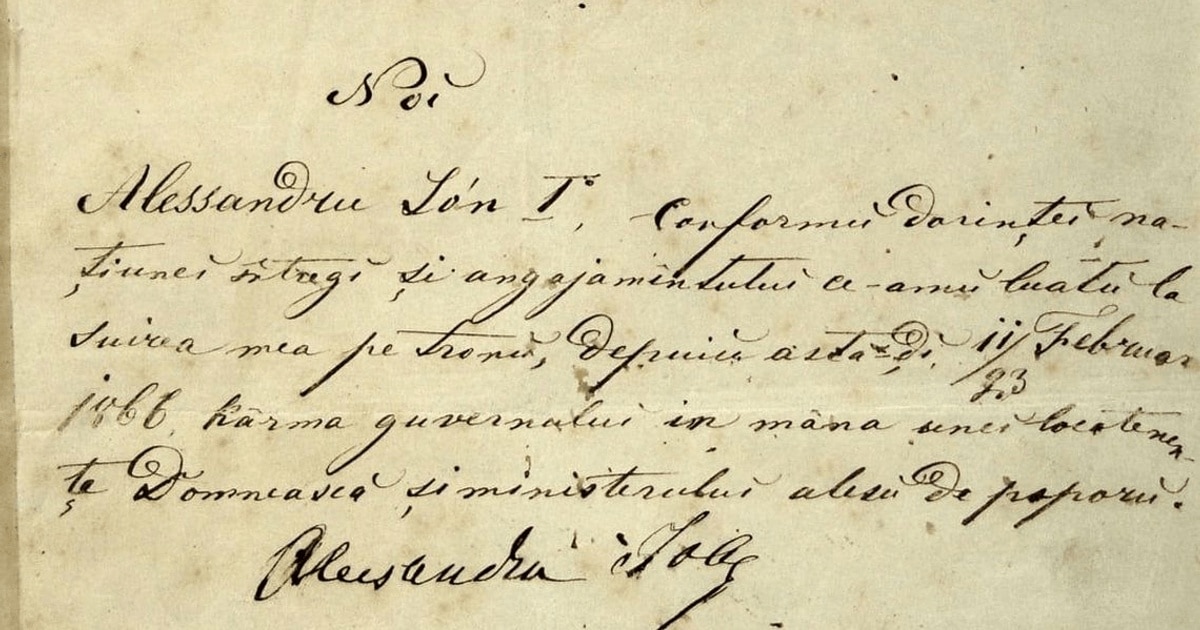 Noi
Alessandru Ión I°, Conformŭ dorințeĭ na-
țiuneĭ întregĭ și angajamîntuluĭ ce-amŭ luatŭ la
suirea mea pe tronŭ, depuiŭ astă-dĭ 11/23 Februar
1866 kârma guvernuluĭ in mâna uneĭ locotenen-
țe Domnească și ministeruluĭ alesŭ de poporŭ.
Alecsandru Ioan